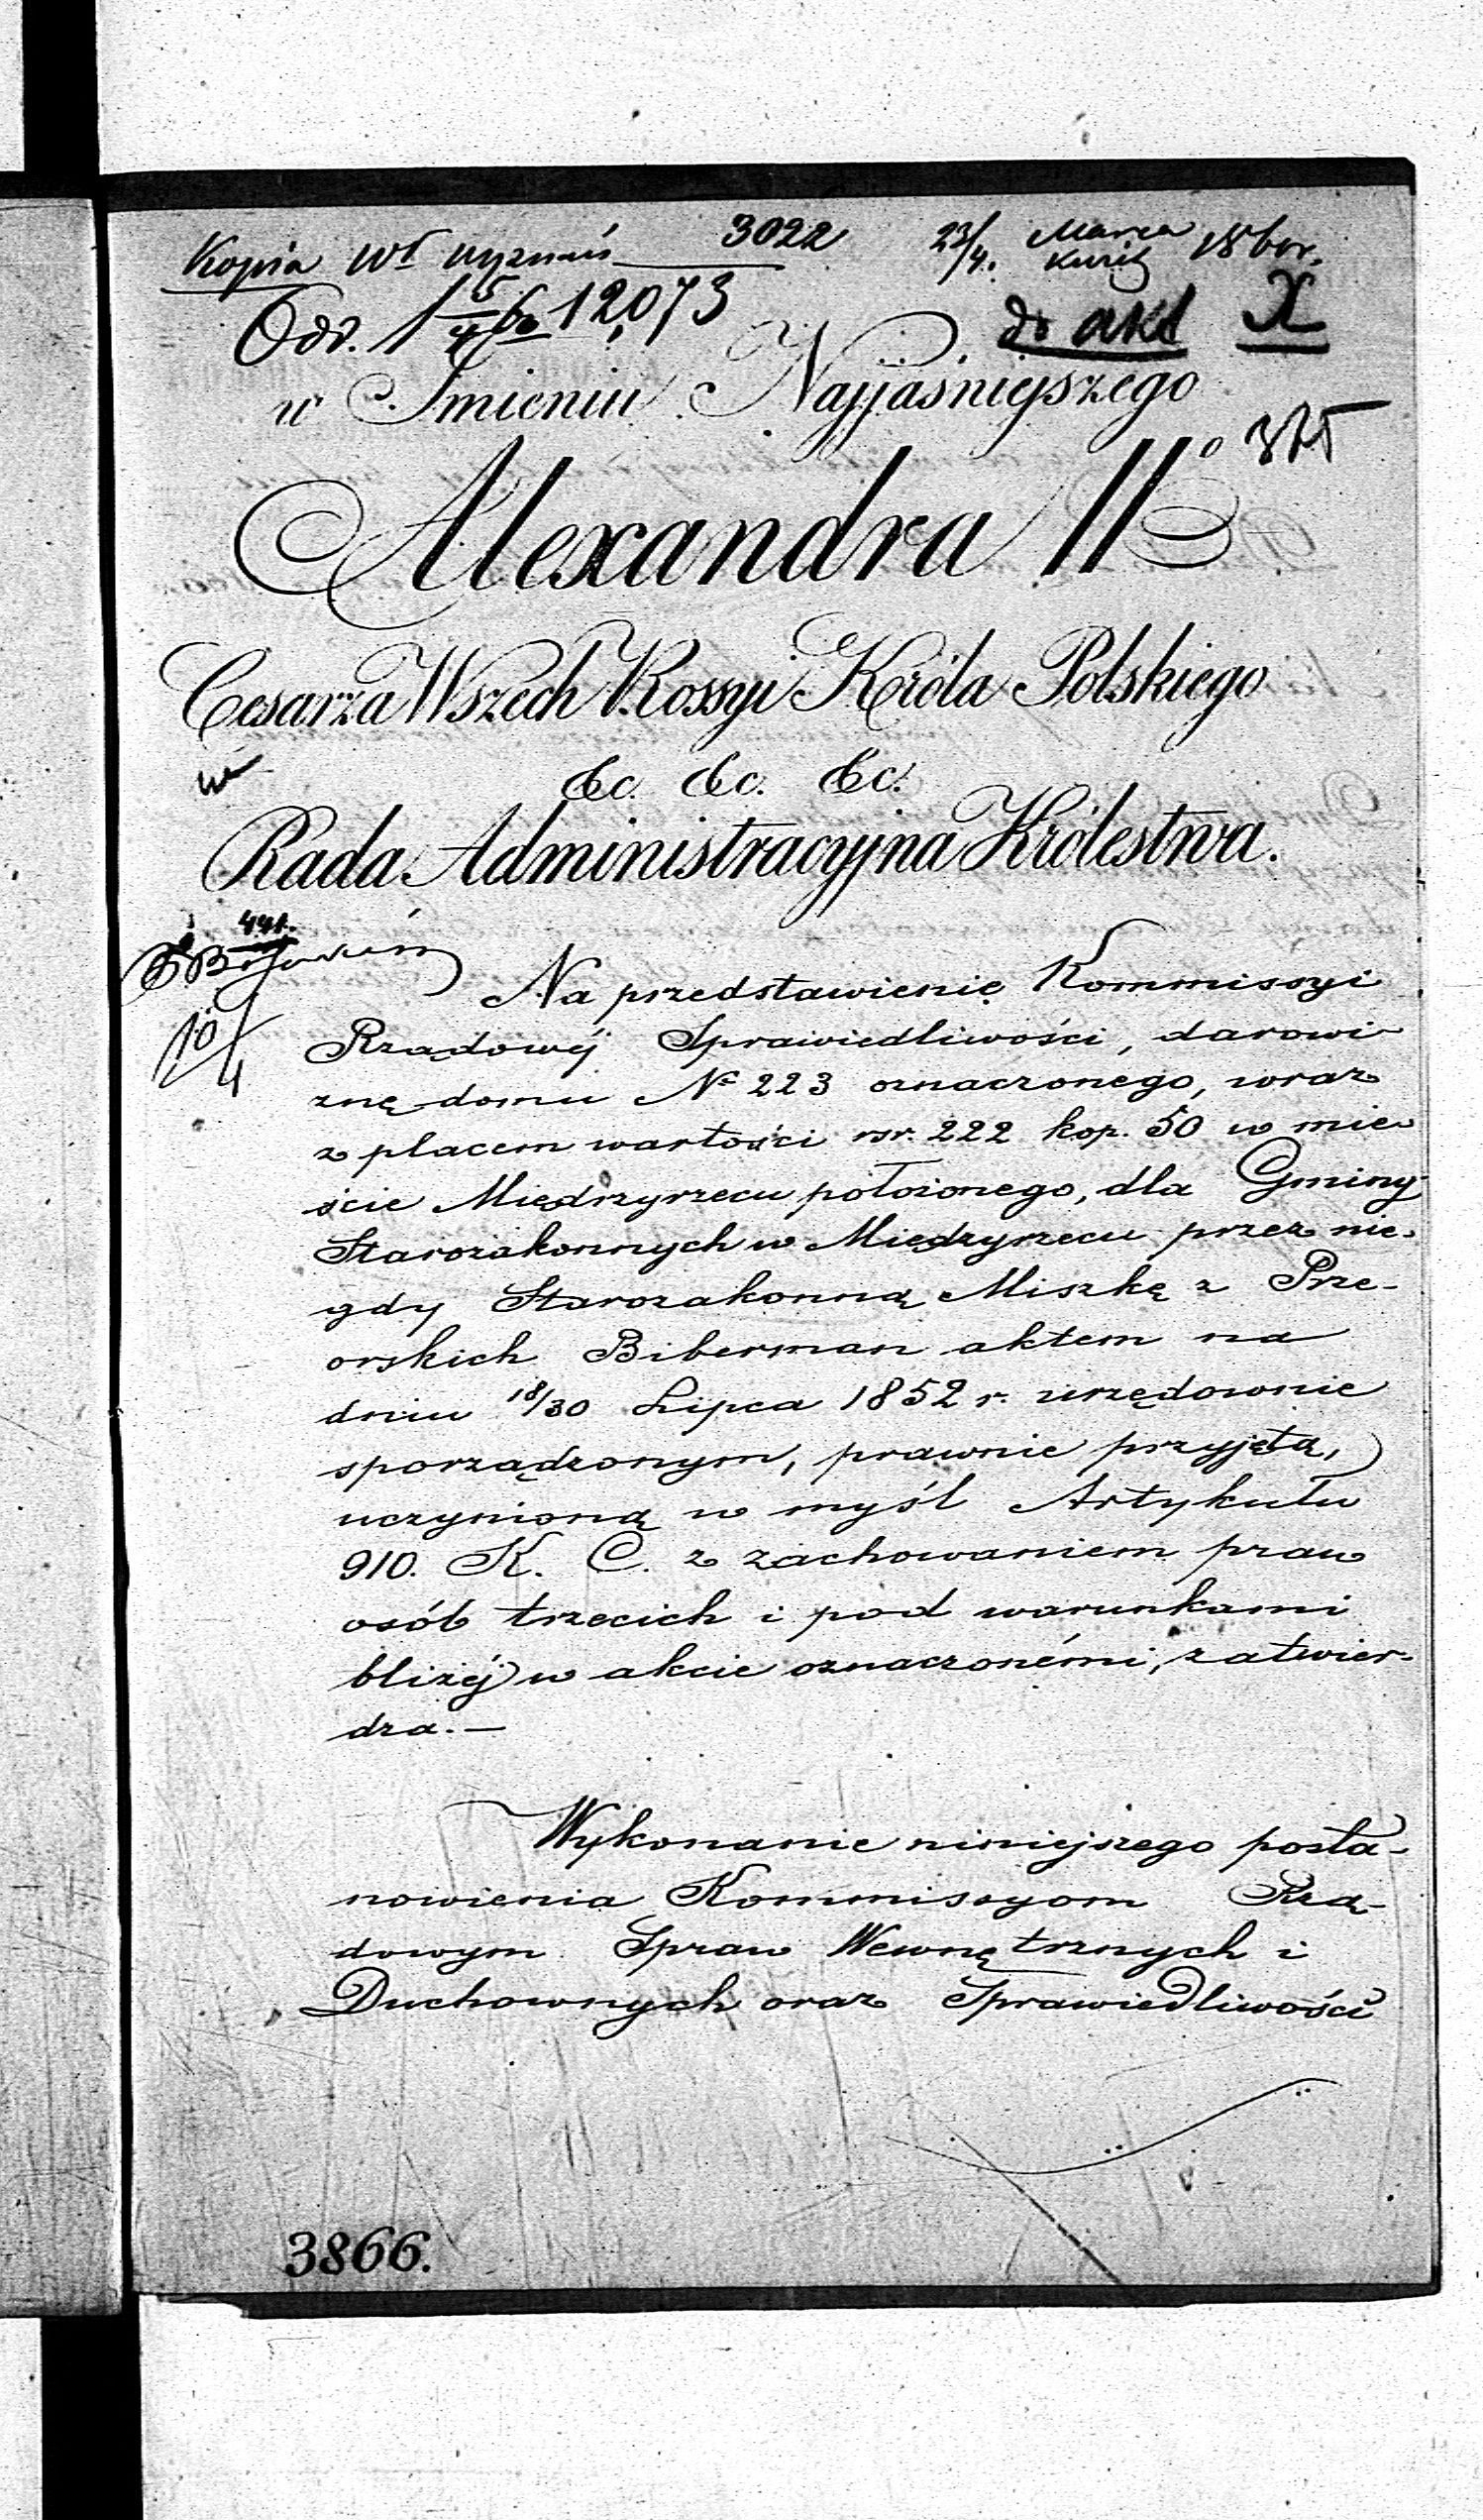 Kopia Wł wyznań 3022 23/4. Marca 1860 r.
Odd. 1 5/4 60 12,073 do akt X
w Imieniu Najjaśniejszego
Alexandra IIº
Cesarza Wszech Rossyi Króla Polskiego
&c. &c. &c.
Rada Administracyjna Królestwa.
10/4
Na przedstawienię Kommissyi
Rządowéj Sprawiedliwości, darowi
znę domu Nº 223 oznaczonego, wraz
z placem wartości rsr. 222 kop. 50 w mie-
ście Międzyrzecu położonego, dla Gminy
Starozakonnych w Międzyrzecu przez nie-
gdy Starozakonną Miszkę z Prze-
orskich Biberman aktem na
dniu 18/30 Lipca 1852 r. urzędownie
sporządzonym, prawnie przyjętą,
uczynioną w myśl Artykułu
910. K. C. z zachowaniem praw
osób trzecich i pod warunkami
bliżéj w akcie oznaczonémi, zatwier-
dza.—
Wykonanie niniejszego posta-
nowienia Kommissyom Rzą-
dowym Spraw Wewnętrznych i
Duchownych oraz Sprawiedliwości
3866.